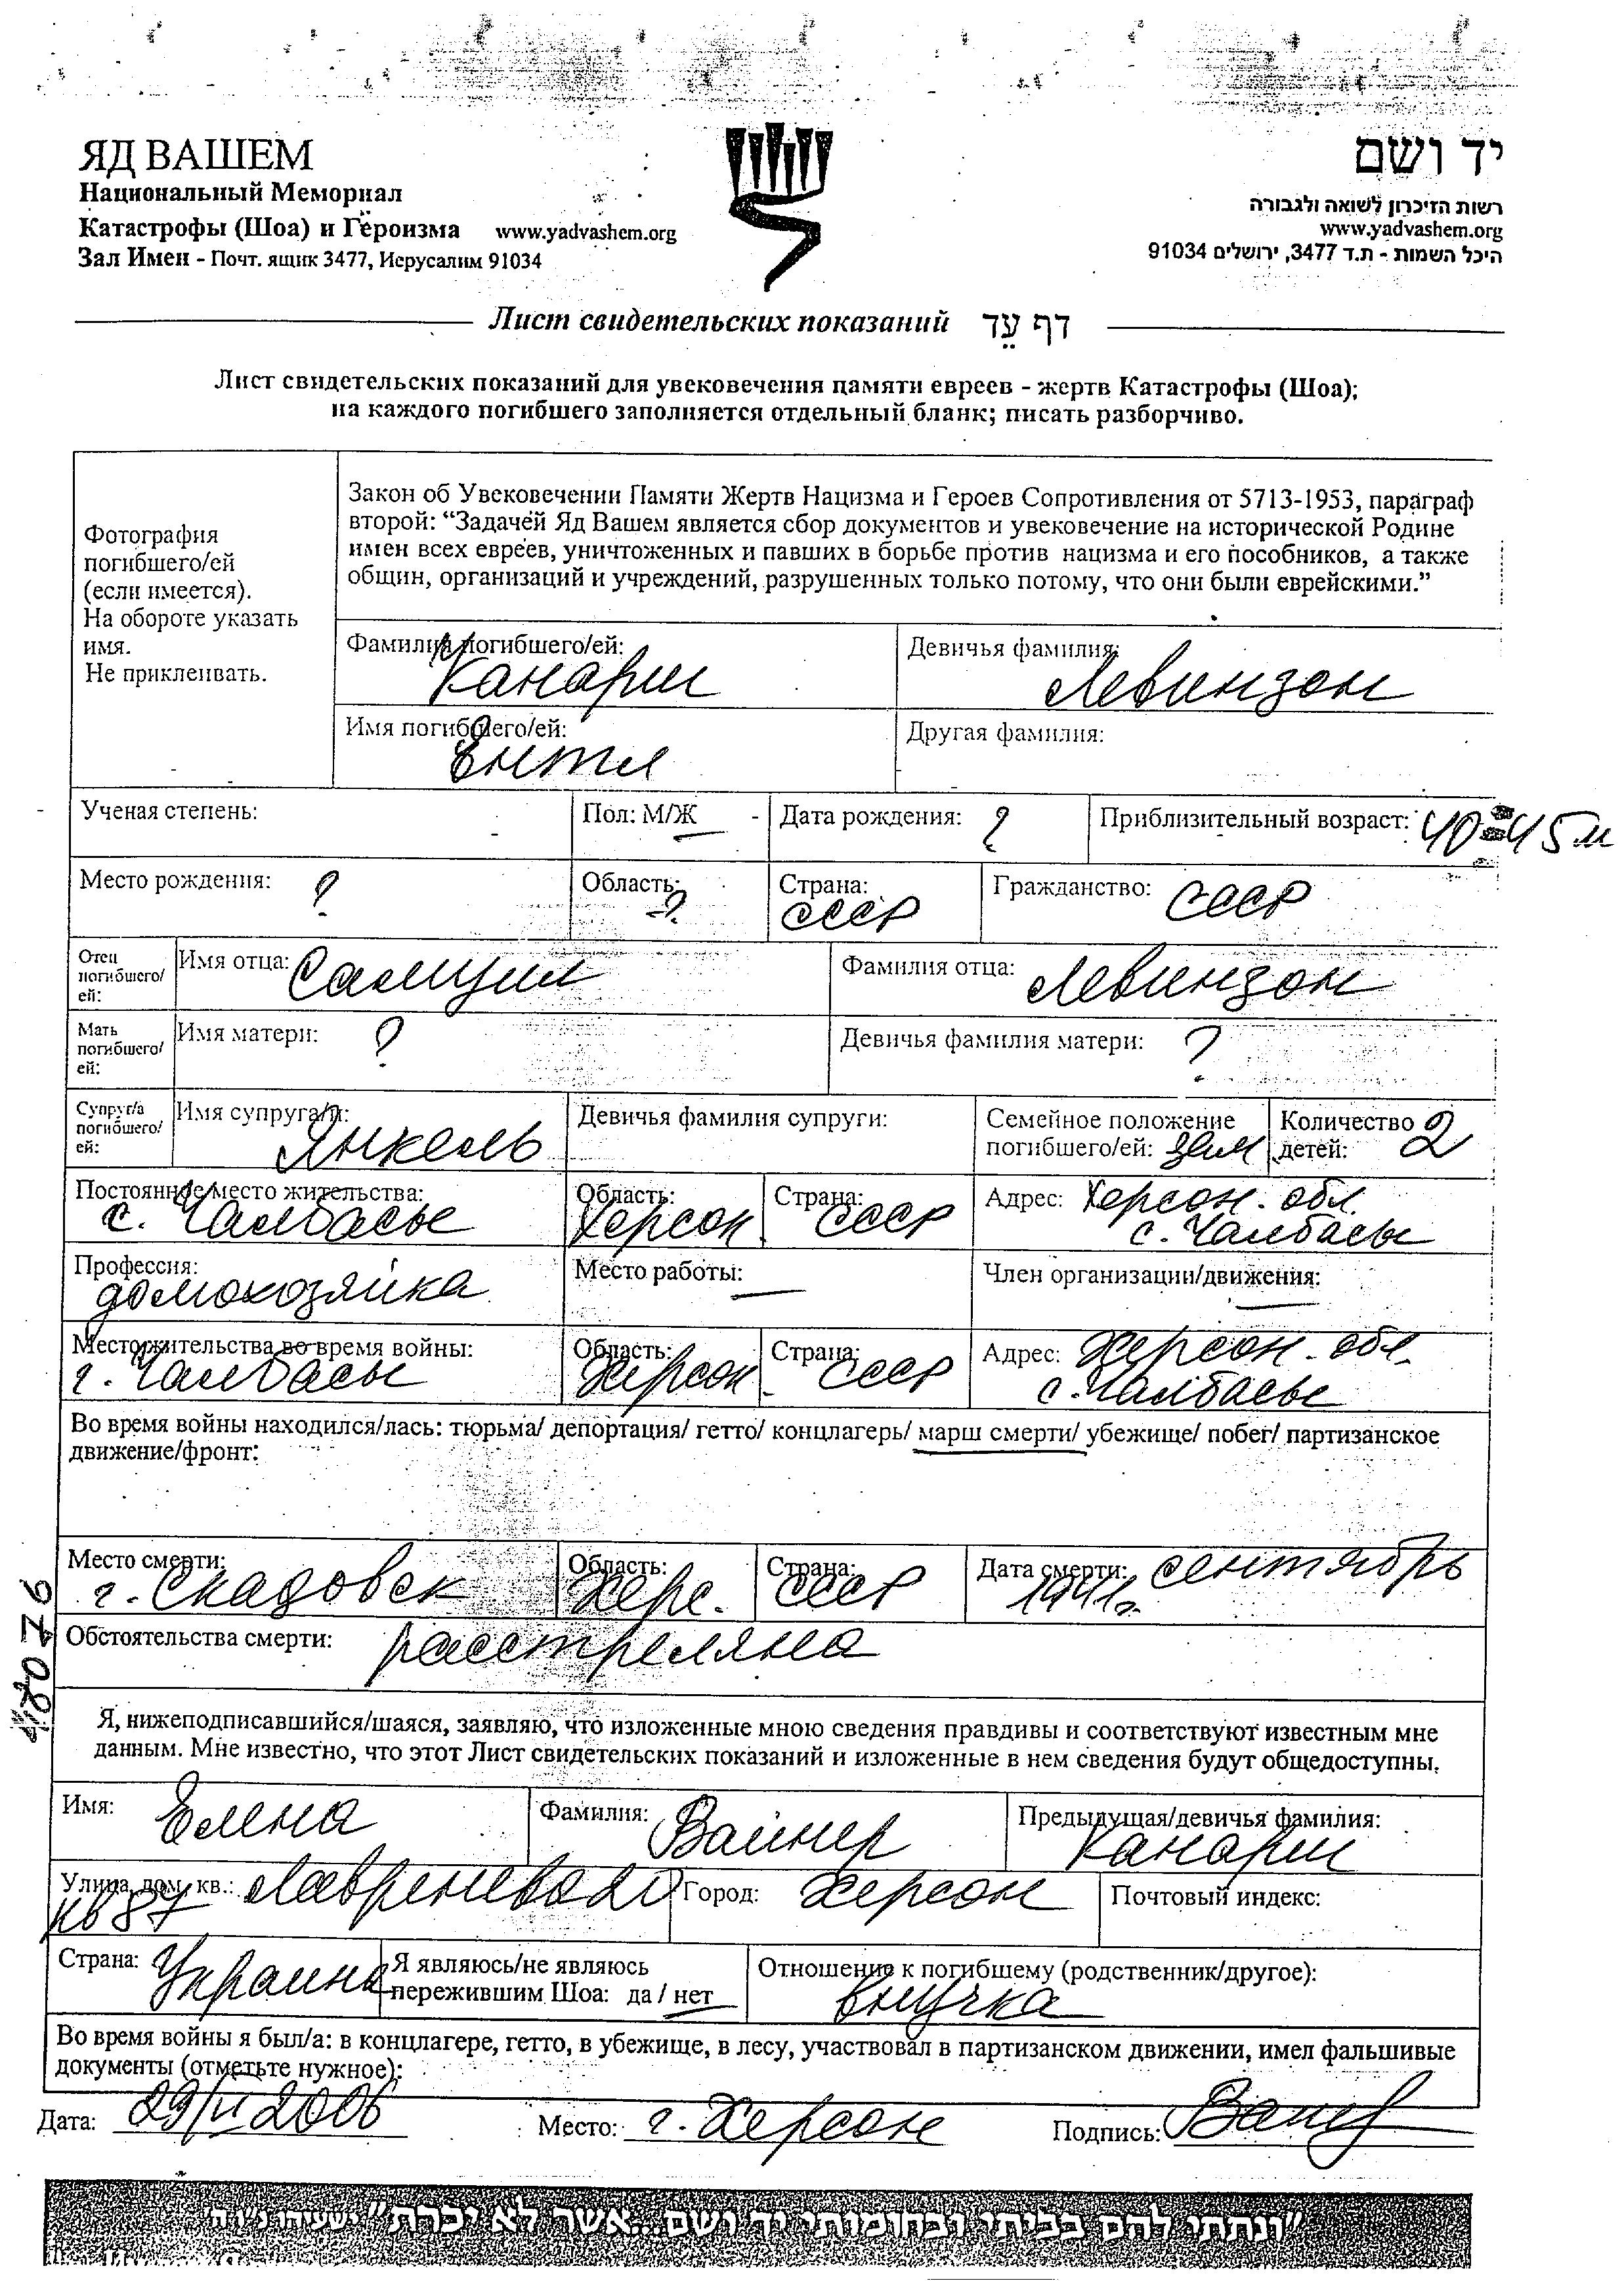 ЯД ВАШЕМ
Национальный Мемориал
Катастрофы (Шоа) и Героизма www.yadvashem.org
Зал Имен - Почт. ящик 3477, Иерусалим 91034
יד ושם
רשות הזיכרון לשואה ולגבורה
www.yadvashem.org
היכל השמות - ת.ד 3477, ירושלים 91034
Лист свидетельских показаний דף עֵד
Лист свидетельских показаний для увековечения памяти евреев - жертв Катастрофы (Шоа);
на каждого погибшего заполняется отдельный бланк; писать разборчиво.
Фотография
погибшего/ей
(если имеется).
На обороте указать
имя.
Не приклеивать.
Закон об Увековечении Памяти Жертв Нацизма и Героев Сопротивления от 5713-1953, параграф
второй: “Задачей Яд Вашем является сбор документов и увековечение на исторической Родине
имен всех евреев, уничтоженных и павших в борьбе против нацизма и его пособников, а также
общин, организаций и учреждений, разрушенных только потому, что они были еврейскими.”
Фамилия погибшего/ей: Девичья фамилия:
Канарш Левинзон
Имя погибшего/ей: Другая фамилия:
Энтл
Ученая степень: Пол: М/Ж Дата рождения: ? Приблизительный возраст: 40-45 л
Место рождения: ? Область: ? Страна: СССР Гражданство: СССР
Отец погибшего/ей: Имя отца: Самуил Фамилия отца: Левинзон
Мать погибшего/ей: Имя матери: ? Девичья фамилия матери: ?
Супруг/а погибшего/ей: Имя супруга/и: Янкель Девичья фамилия супруги: Семейное положение погибшего/ей: зам Количество детей: 2
Постоянное место жительства: с. Чалбасы Область: Херсон. Страна: СССР Адрес: Херсон. обл.
с. Чалбасы
Профессия: домохозяйка Место работы: — Член организации/движения: —
Место жительства во время войны: г. Чалбасы Область: Херсон. Страна: СССР Адрес: Херсон. обл.
с. Чалбасы
Во время войны находился/лась: тюрьма/ депортация/ гетто/ концлагерь/ марш смерти/ убежище/ побег/ партизанское
движение/фронт:
Место смерти: г. Скадовск Область: Херс. Страна: СССР Дата смерти: сентябрь
1941г.
Обстоятельства смерти: расстреляна
Я, нижеподписавшийся/шаяся, заявляю, что изложенные мною сведения правдивы и соответствуют известным мне
данным. Мне известно, что этот Лист свидетельских показаний и изложенные в нем сведения будут общедоступны.
Имя: Елена Фамилия: Вайнер Предыдущая/девичья фамилия: Канарш
Улица, дом, кв.: Город: Херсон Почтовый индекс:
кв 87
Страна: Украина Я являюсь/не являюсь
пережившим Шоа: да / нет Отношение к погибшему (родственник/другое):
внучка
Во время войны я был/а: в концлагере, гетто, в убежище, в лесу, участвовал в партизанском движении, имел фальшивые
документы (отметьте нужное):
Дата: 29/II 2006 Место: г. Херсон Подпись:
"ונתתי להם בביתי ובחומותי יד ושם...אשר לא יכרת" ישעיהו נ"ו ה'